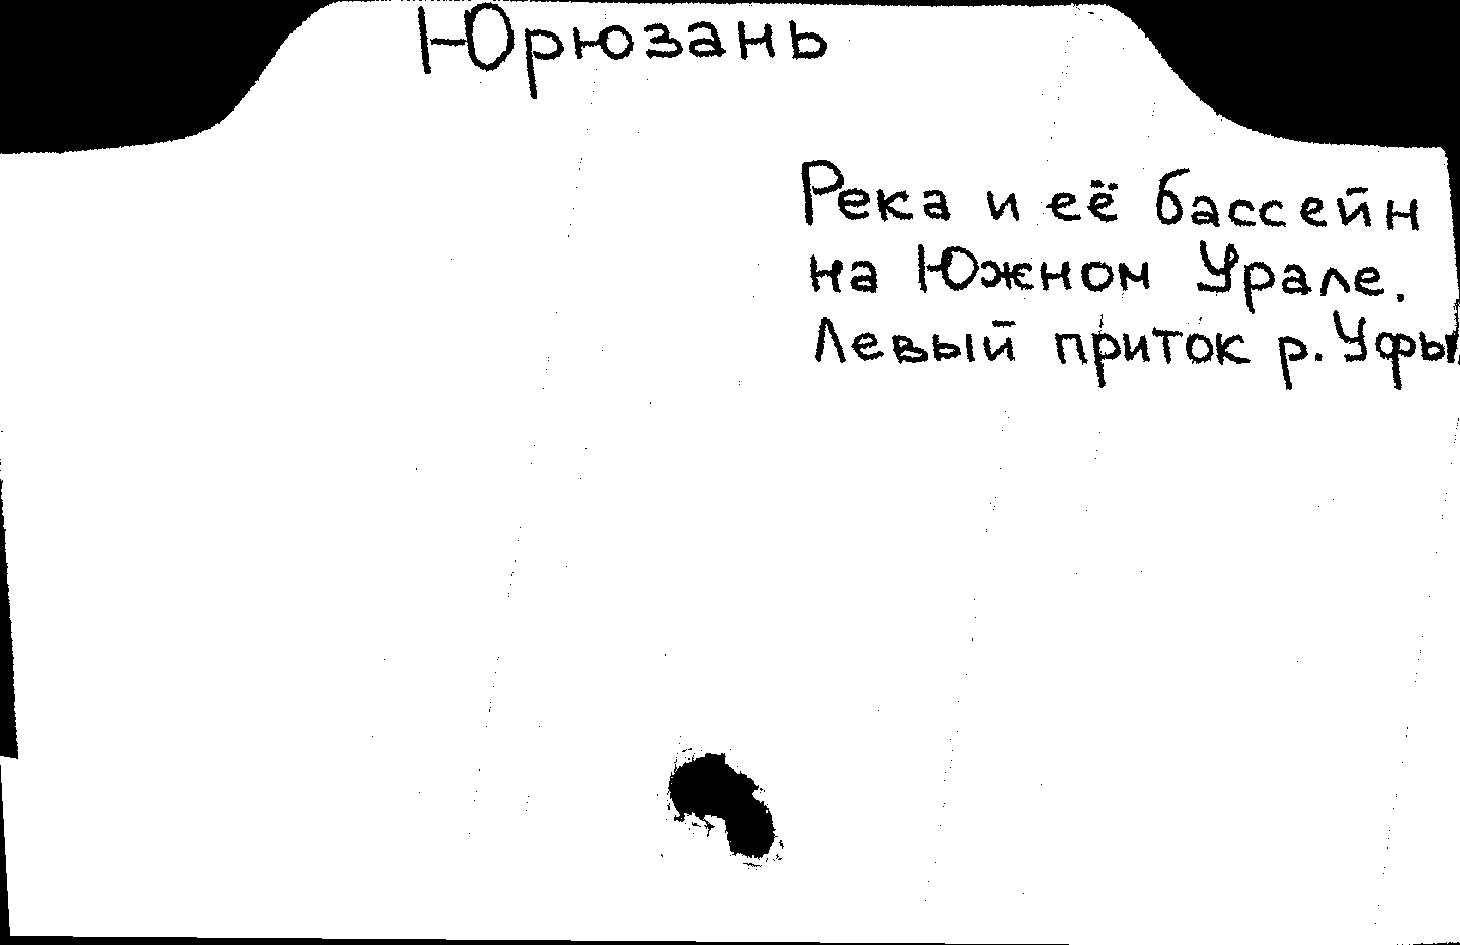 Юрюзань
Река и её бассейн
на Южном Урале.
Левый приток р. Уфы